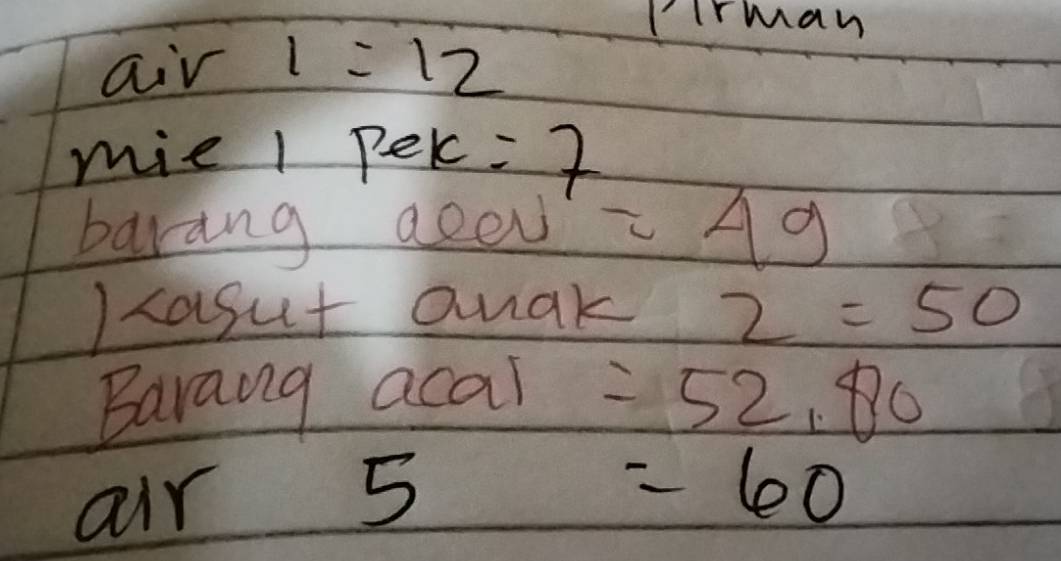 air 1 = 12
mie 1 Pek = 7
barang = 49
Kasut anak 2 = 50
Barang acai = 52.80
air 5 = 60